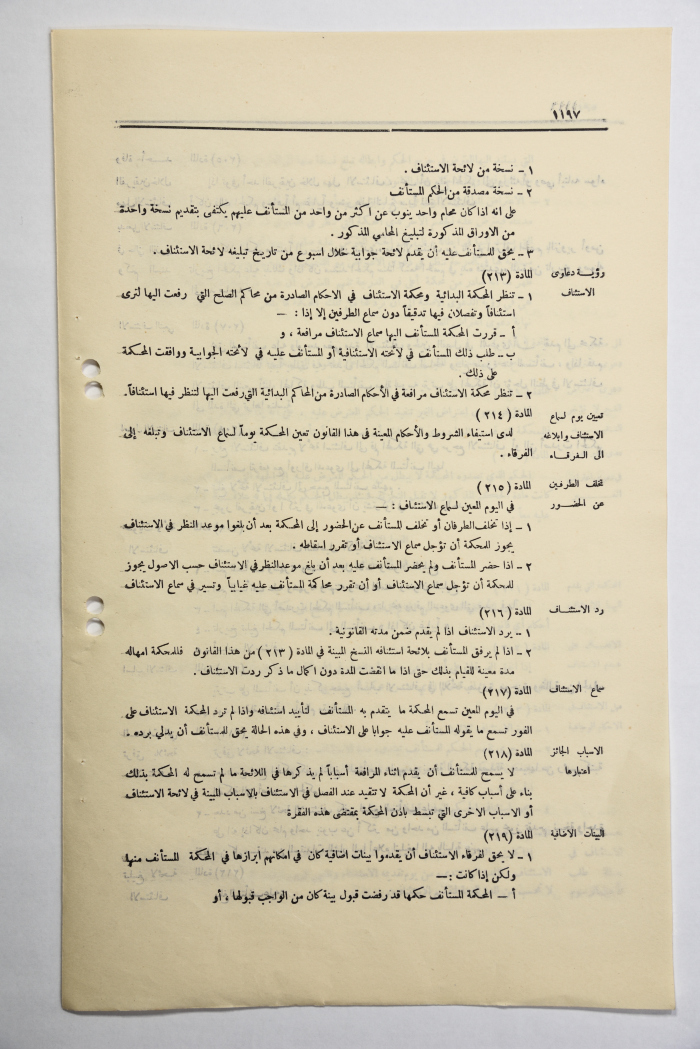 ١١٩٧
١ - نسخة من لائحة الاستئناف .
٢ - نسخة مصدقة من الحكم المستأنف
على انه اذا كان محام واحد ينوب عن اكثر من واحد من المستأنف عليهم يكتفى بتقديم نسخة واحدة
من الاوراق المذكورة لتبليغ المحامي المذكور .
٣ - يحق للمستأنف عليه أن يقدم لائحة جوابية خلال اسبوع من تاريخ تبليغه لائحة الاستئناف .
رؤيـة دعاوى
الاستئناف
المادة (٢١٣)
١ - تنظر المحكمة البدائية ومحكمة الاستئناف في الاحكام الصادرة من محاكم الصلح التي رفعت اليها لترى
استئنافاً وتفصلان فيها تدقيقاً دون سماع الطرفين إلا إذا : —
أ - قررت المحكمة المستأنف اليها سماع الاستئناف مرافعة ، و
ب - طلب ذلك المستأنف في لائحته الاستئنافية أو المستأنف عليه في لائحته الجوابية ووافقت المحكمة
على ذلك .
٢ - تنظر محكمة الاستئناف مرافعة في الأحكام الصادرة من المحاكم البدائية التي رفعت اليها لتنظر فيها استئنافاً .
تعيين يوم لسماع
الاستئناف وابلاغه
الى الفرقـاء
المادة (٢١٤)
لدى استيفاء الشروط والأحكام المعينة في هذا القانون تعين المحكمة يوماً لسماع الاستئناف وتبلغه إلى
الفرقاء .
تخلف الطرفين
عن الحضـور
المادة (٢١٥)
في اليوم المعين لسماع الاستئناف : —
١ - إذا تخلف الطرفان أو تخلف المستأنف عن الحضور إلى المحكمة بعد أن بلغوا موعد النظر في الاستئناف
يجوز للمحكمة أن تؤجل سماع الاستئناف أو تقرر اسقاطه .
٢ - اذا حضر المستأنف ولم يحضر المستأنف عليه بعد أن بلغ موعد النظر في الاستئناف حسب الاصول يجوز
للمحكمة أن تؤجل سماع الاستئناف أو أن تقرر محاكمة المستأنف عليه غيابياً وتسير في سماع الاستئناف
رد الاستئنـاف
المادة (٢١٦)
١ - يرد الاستئناف اذا لم يقدم ضمن مدته القانونية .
٢ - اذا لم يرفق المستأنف بلائحة استئنافه النسخ المبينة في المادة (٢١٣) من هذا القانون فللمحكمة امهاله
مدة معينة للقيام بذلك حتى اذا ما انقضت المدة دون اكمال ما ذكر ردت الاستئناف .
سماع الاستئناف
المادة (٢١٧)
في اليوم المعين تسمع المحكمة ما يتقدم به المستأنف لتأييد استئنافه واذا لم ترد المحكمة الاستئناف على
الفور تسمع ما يقوله المستأنف عليه جوابا على الاستئناف ، وفي هذه الحالة يحق للمستأنف أن يدلي برده .
الاسباب الجائز
اعتبارها
المادة (٢١٨)
لا يسمح للمستأنف أن يقدم اثناء المرافعة أسباباً لم يذكرها في اللائحة ما لم تسمح له المحكمة بذلك
بناء على أسباب كافية ، غير أن المحكمة لا تتقيد عند الفصل في الاستئناف بالاسباب المبينة في لائحة الاستئناف
أو الاسباب الاخرى التي تبسط باذن المحكمة بمقتضى هذه الفقرة
البينات الاضافية
المادة (٢١٩)
١ - لا يحق لفرقاء الاستئناف أن يقدموا بينات اضافية كان في امكانهم ابرازها في المحكمة المستأنف منها
ولكن إذا كانت : —
أ — المحكمة المستأنف حكمها قد رفضت قبول بينة كان من الواجب قبولها ، أو